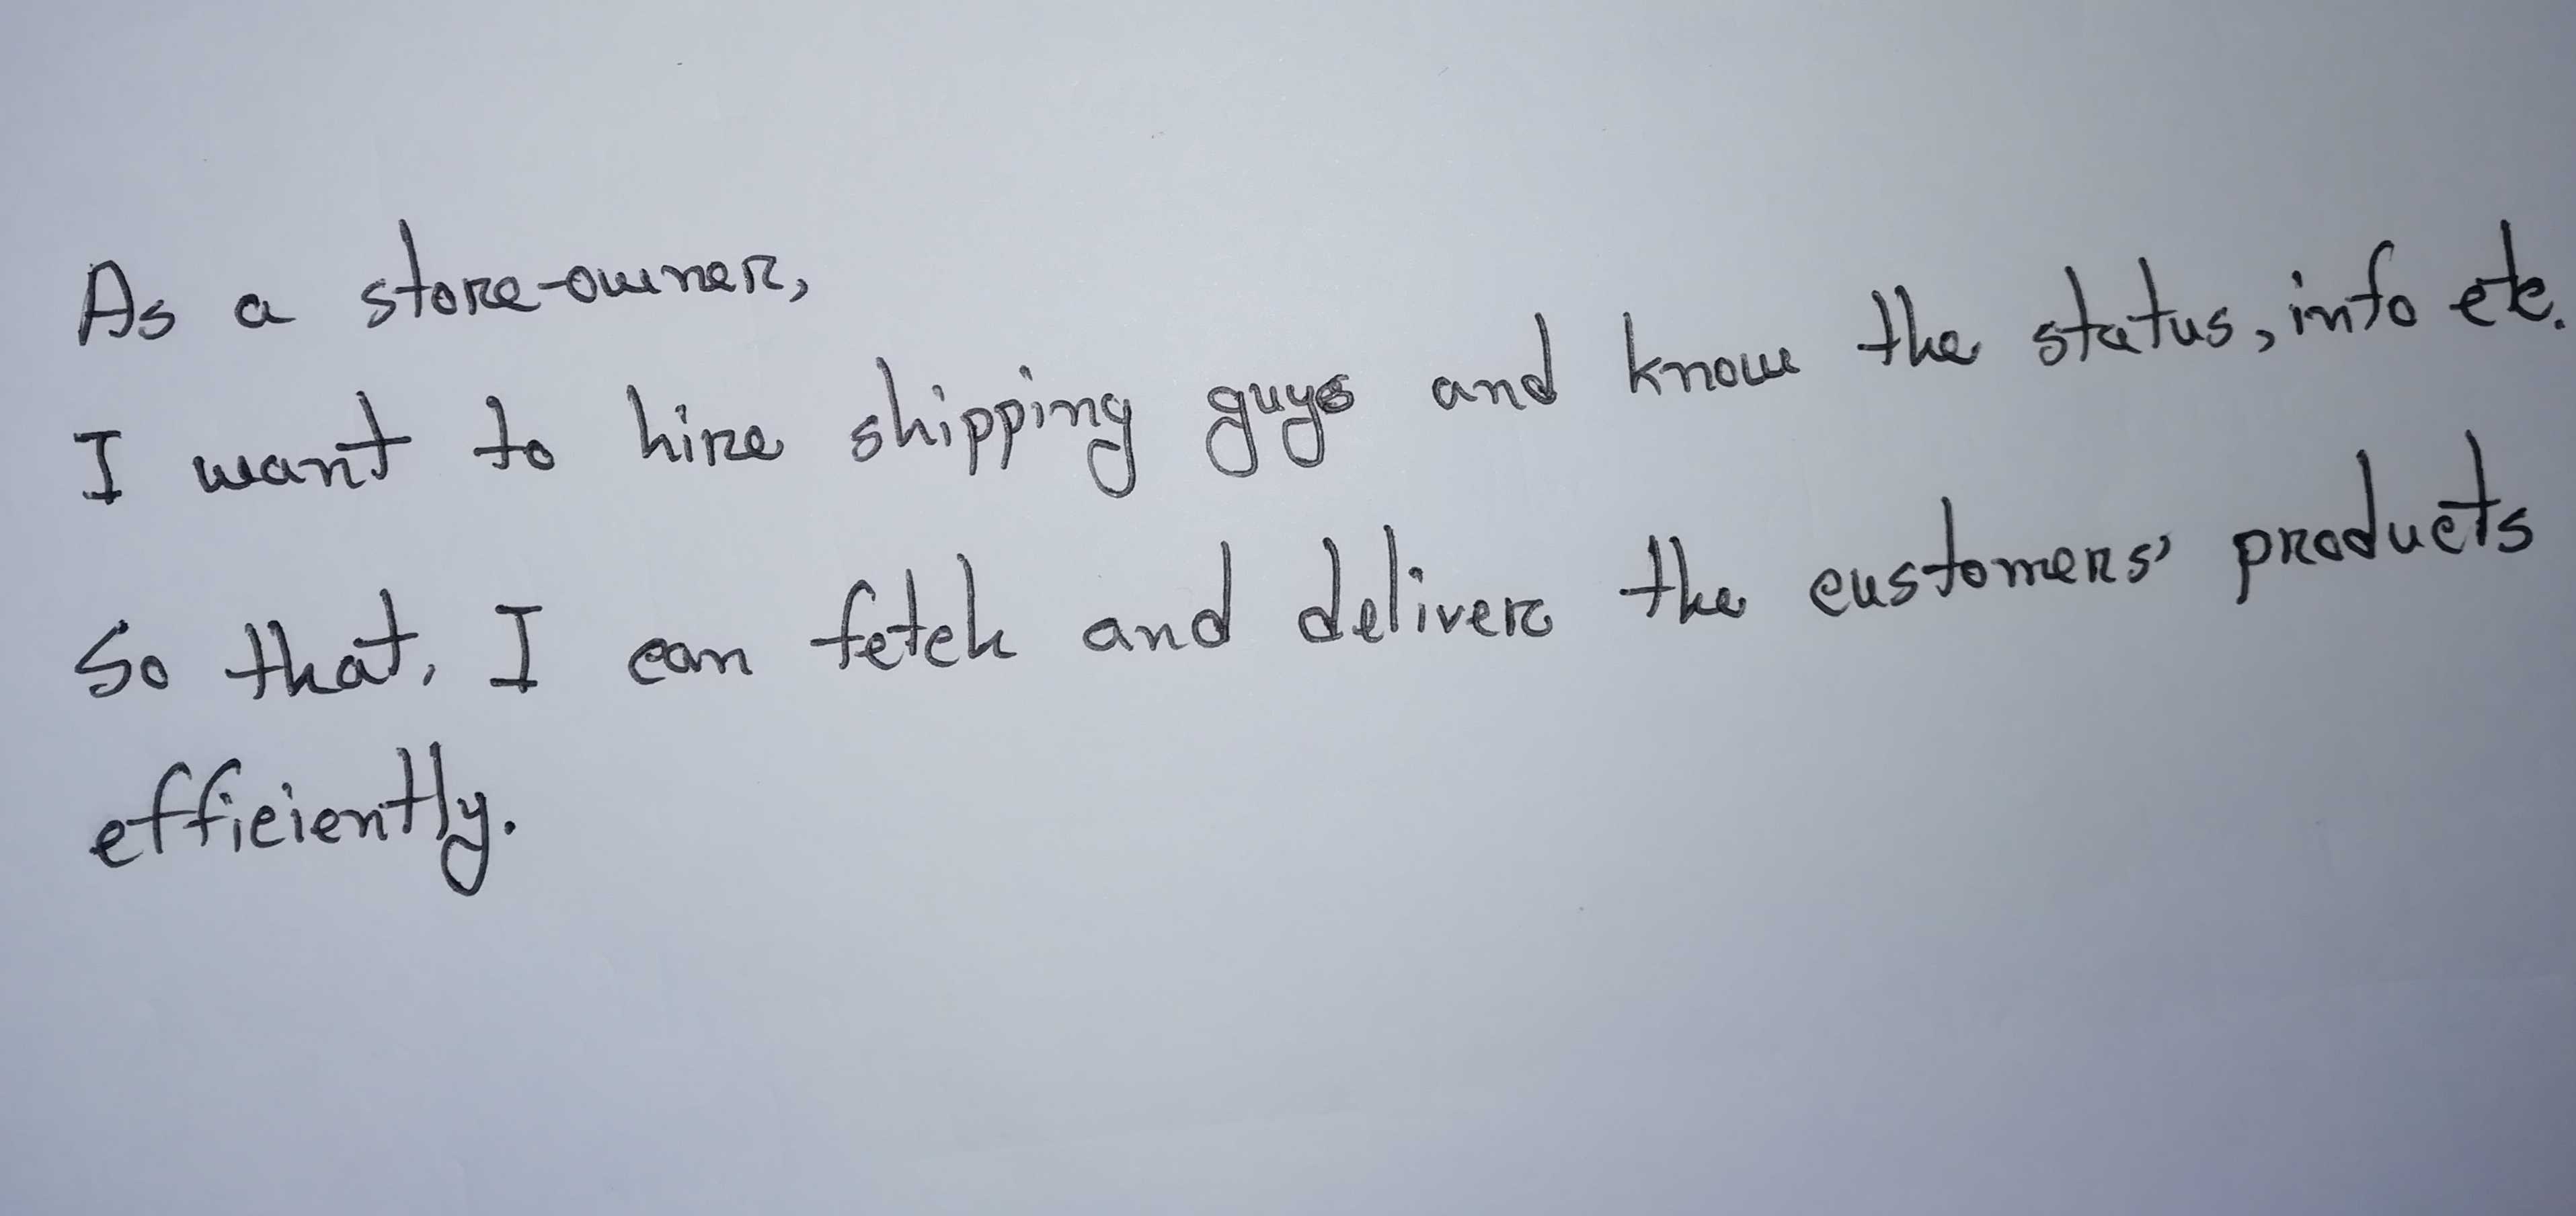 As a store-owner,
I want to hire shipping guys and know the status, info etc.
So that, I can fetch and deliver the customers' products
efficiently.